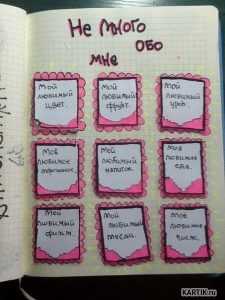 Не много
обо
мне
Мой
любимый
цвет.
Мой
любимый
фрукт.
Мой
любимый
урок.
Моё
любимое
Мой
любимый
напиток.
Моя
любимая
еда.
Мой
любимый
фильм.
Мой
любимый
Моё
любимое
KARTIK.ru